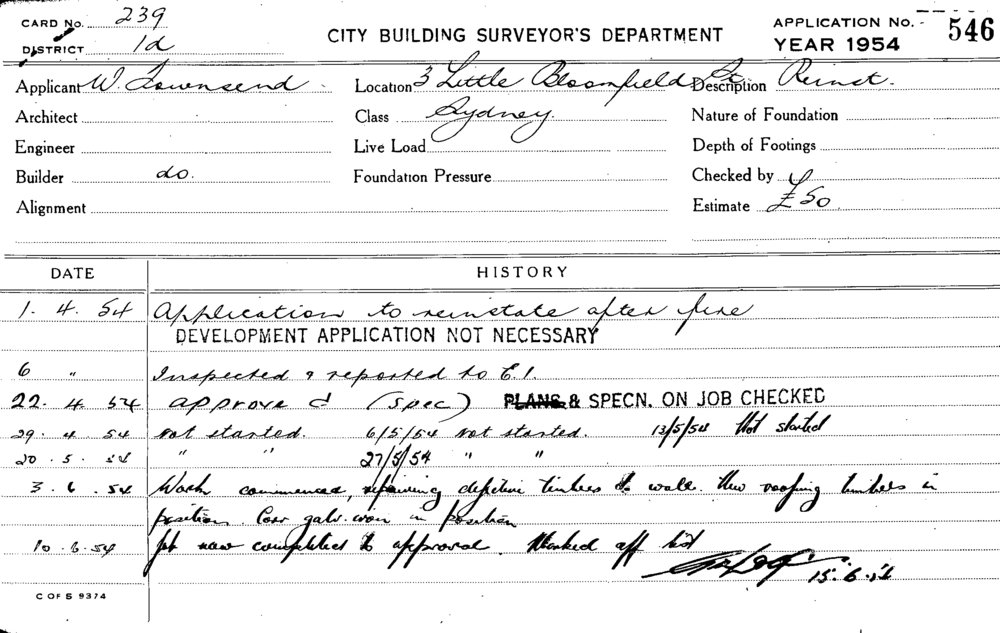 CARD No. 239
DISTRICT 1d
CITY BUILDING SURVEYOR'S DEPARTMENT
APPLICATION No. 546
YEAR 1954
Applicant W. Townsend. Location 3 Little Bloomfield St Description Reinst.
Architect Class Sydney. Nature of Foundation
Engineer Live Load Depth of Footings
Builder do. Foundation Pressure Checked by
Alignment Estimate £50
DATE HISTORY
1. 4. 54 Application to reinstate after fire
DEVELOPMENT APPLICATION NOT NECESSARY
6 " Inspected & reported to E.I.
22. 4. 54 approved (spec) PLANS & SPECN. ON JOB CHECKED
29. 4. 54 not started. 6/5/54 not started. 13/5/54 Not started
20. 5. 54 " " 27/5/54 " "
3. 6. 54 Work commenced, repairing defective timbers to walls. New roofing timbers in
position. Corr galv. iron in position
10. 6. 54 Job now completed to approval. Marked off list
15. 6. 54
C OF S 9374